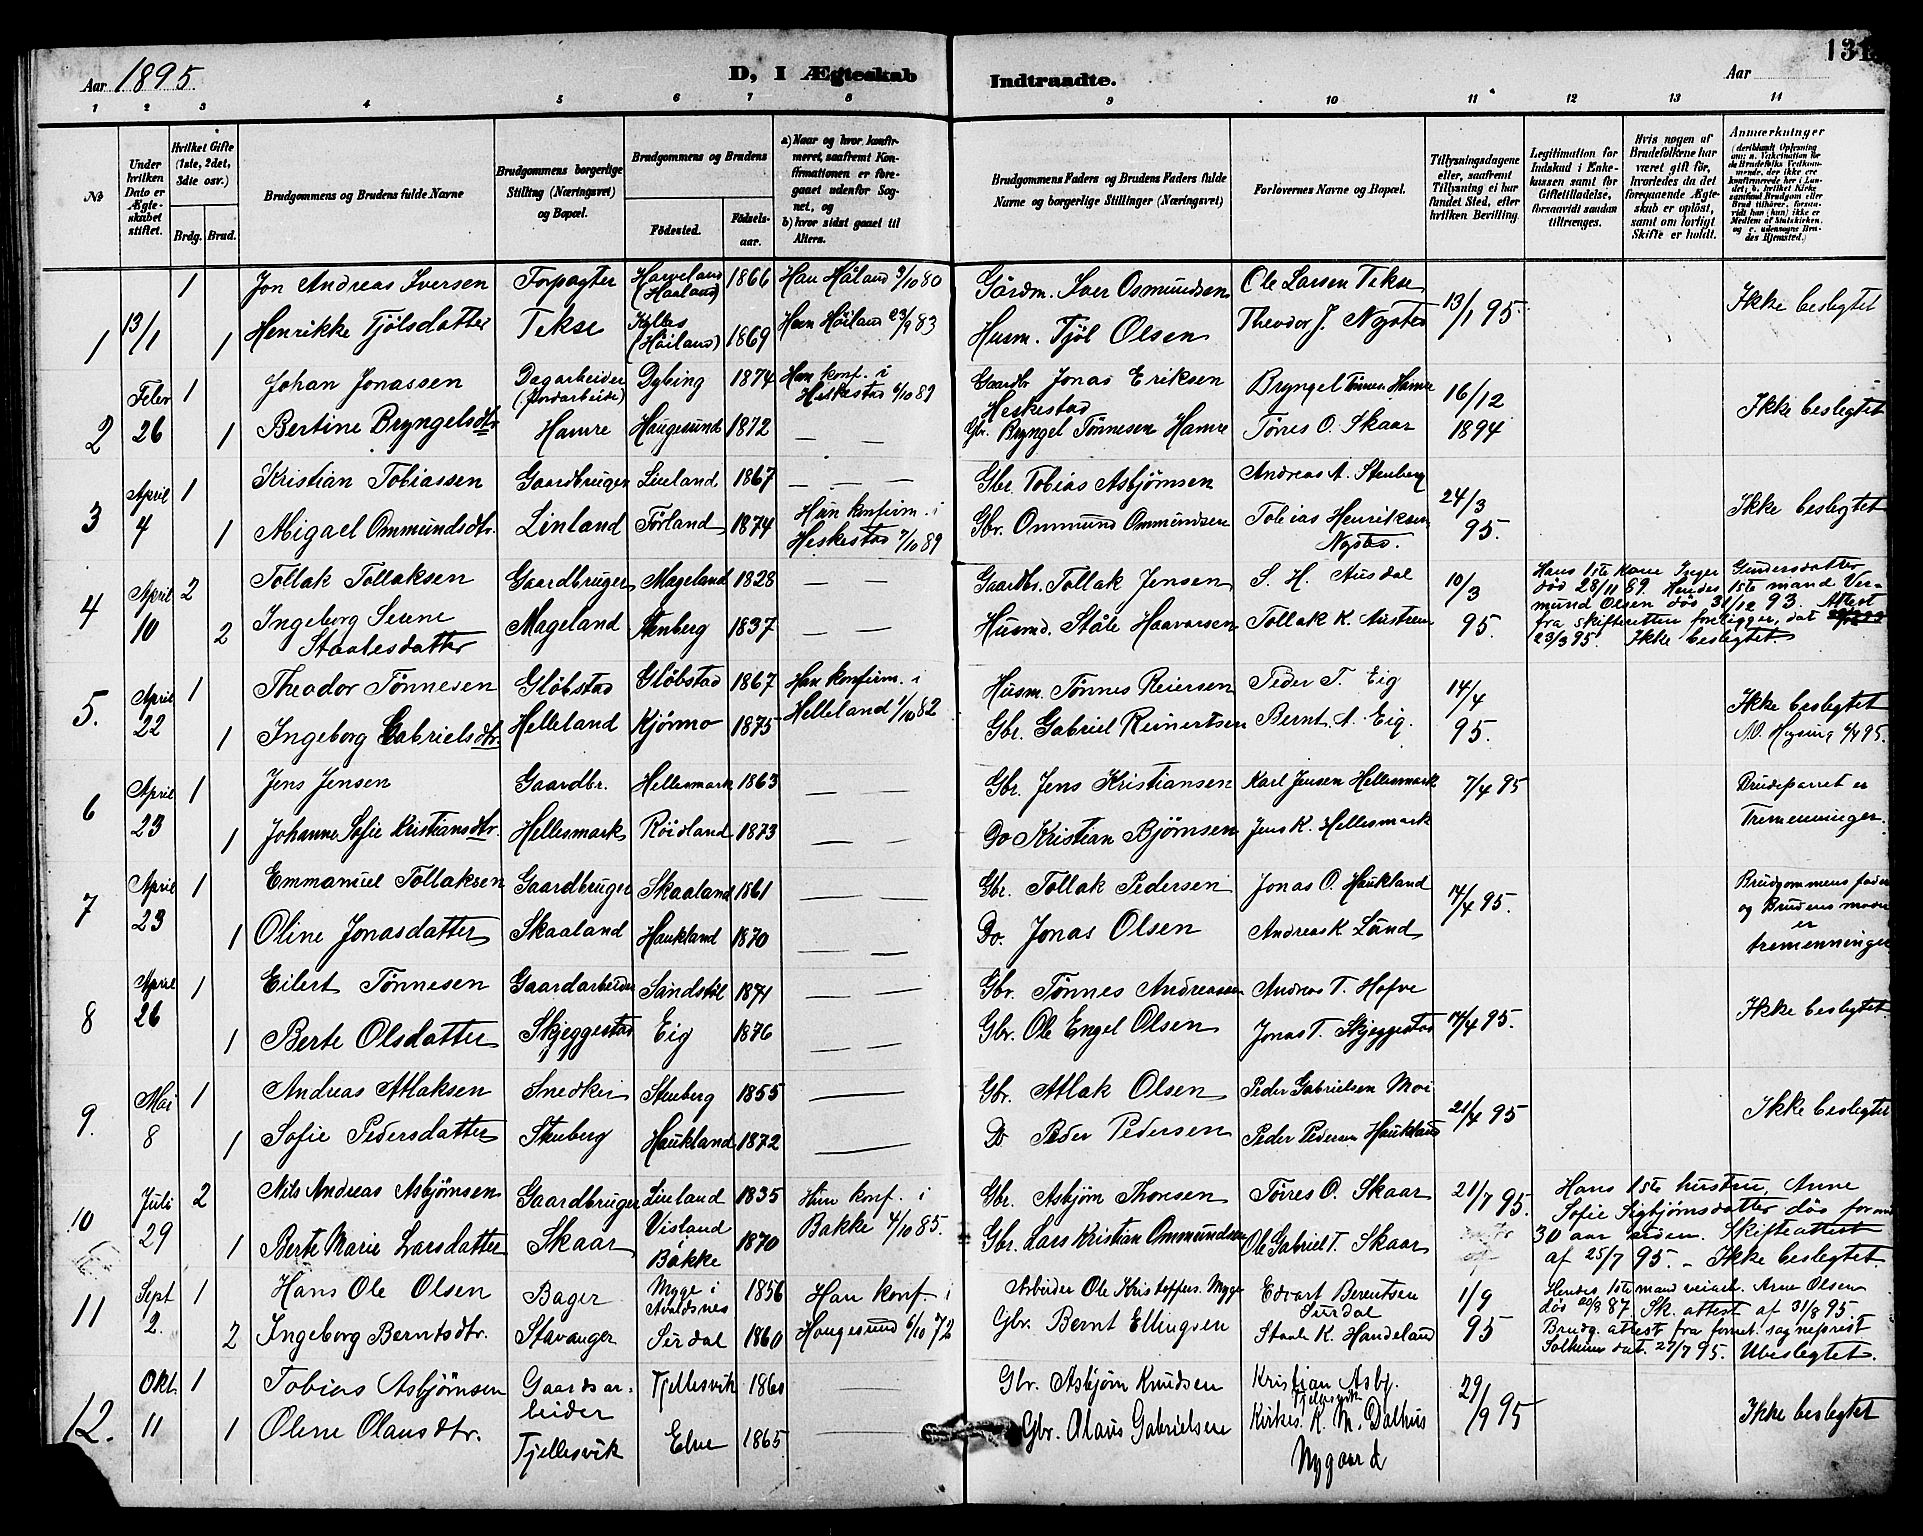 Aar 1895.
D, I Ægteskab Indtraadte.
Aar
131.
1 2 3 4 5 6 7 8 9 10 11 12 13 14
No
Under hvilken Dato er Ægteskabet stiftet.
Hvilket Gifte (1ste, 2det, 3die osv.)
Brdg. Brud.
Brudgommens og Brudens fulde Navne
Brudgommens borgerlige Stilling (Næringsvei) og Bopæl.
Brudgommens og Brudens
Fødested. Fødselsaar.
a) Naar og hvor konfirmeret, saafremt Konfirmationen er foregaaet udenfor Sognet, og
b) hvor sidst gaaet til Alters.
Brudgommens Faders og Brudens Faders fulde Navne og borgerlige Stillinger (Næringsvei)
Forlovernes Navne og Bopæl.
Tillysningsdagene eller, saafremt Tillysning ei har fundet Sted, efter hvilken Bevilling.
Legitimation for Indskud i Enkekassen samt for Giftetilladelse, forsaavidt saadan tiltrænges.
Hvis nogen af Brudefolkene har været gift før, hvorledes da det foregaaende Ægteskab er opløst, samt om lovligt Skifte er holdt.
Anmærkninger
1 13/1 1 Jon Andreas Iversen Forpagter Harveland (Haaland) 1866 Han Håland 3/10 80 Gårdm. Iver Osmundsen Ole Larsen Tekse 13/1 95. Ikke beslegtet
1 Henrikke Tjølsdatter Tekse Kylles (Høiland) 1869 Hun Høiland 23/9 83 Husm. Tjøl Olsen Theodor J. Nysted
2 Febr 26 1 Johan Jonassen Dagarbeider (Jordarbeide) Dybing 1874 Han konf. i Heskestad 6/10 89 Gaardbr Jonas Eriksen Heskestad Bryngel Tønnes. Hamre 16/12 1894 Ikke beslegtet
1 Bertine Bryngelsdtr Hamre Haugesund 1872 — — Gbr. Bryngel Tønnesen Hamre Tønes O. Skaar
3 April 4 1 Kristian Tobiassen Gaardbruger Linland 1867 — — Gbr. Tobias Asbjørnsen Andreas A. Stenberg 24/3 95. Ikke beslegtet
1 Abigael Ommundsdtr. Linland Førland 1874 Hun konfirm. i Heskestad 7/10 89 Gbr. Ommund Ommundsen Tobias Henriksen Nysted.
4 April 10 2 Tollak Tollaksen Gaardbruger Mageland 1828 — — Gaardbr. Tollak Jensen S. H. Ausdal 10/3 95.
2 Ingeborg Serine Staalesdatter Mageland Stenberg 1837 — — Husmd. Ståle Haavarsen Tollak K. Austrem
Hans 1ste kone Inger Gundersdatter
død 28/11 69. Hendes 1ste mand Ver-
mund Olsen død 31/12 93. Attest
fra skifteretten foreligger, dat
23/3 95. Ikke beslegtet.
5. April 22 1 Theodor Tønnesen Gløbstad Gløbstad 1867 Han konfirm. i Helleland 1/10 82 Husm. Tønnes Reiersen Peder T. Eig 14/4 95. Ikke beslegtet
1 Ingeborg Gabrielsdtr. Helleland Kjørmo 1875 Gbr. Gabriel Reinertsen Bernt A. Eig.
6 April 23 1 Jens Jensen Gaardbr. Hellesmark 1863 — — Gbr. Jens Kristiansen Karl Jensen Hellesmark 7/4 95 Brudeparret er Tremenninger.
1 Johanne Sofie Kristiansdtr. Hellesmark Røidland 1873 — — Do Kristian Bjørnsen Jens K. Hellesmark
7 April 23 1 Emmanuel Tollaksen Gaardbruger Skaaland 1861 — — Gbr. Tollak Pedersen Jonas O. Haukland 14/4 95. Brudgommens fader og Brudens moder er tremenninger
1 Oline Jonasdatter Skaaland Haukland 1870 — — Do. Jonas Olsen Andreas K Lund
8 April 26 1 Eilert Tønnesen Gaardarbeider Sandstøl 1871 — — Gbr. Tønnes Andreassen Andreas T. Hofve 14/4 95. Ikke beslegtet
1 Berte Olsdatter Skjeggestad Eig 1876 — — Gbr. Ole Engel Olsen Jonas T. Skjeggestad
9. Mai 8 1 Andreas Atlaksen Snedker Stenberg 1855 Gbr. Atlak Olsen Peder Gabrielsen Moi 21/4 95 Ikke beslegtet
1 Sofie Pedersdatter Stenberg Haukland 1872 D Peder Pedersen Peder Pedersen Haukland
10 Juli 29 2 Nils Andreas Asbjørnsen Gaardbruger Linland 1835 Hun konf. i Bakke 4/10 85. Gbr. Asbjørn Thorsen Tørres O. Skaar 21/7 95.
1 Berte Marie Larsdatter Skaar Visland i Bakke 1870 Gbr. Lars Kristian Ommundsen Ole Gabriel T. Skaar
Hans 1ste hustru, Anne
Sofie Sigbjørnsdatter død for
30 aar siden. Skifteattest
af 25/7 95. - Ikke beslegtet
11 Sept 2. 1 Hans Ole Olsen Bager Myge i Avaldsnes 1856 Han konf. i Haugesund 6/10 72 Arbeider Ole Kristoffers. Myge Edvart Berentsen Sirdal 1/9 95
2 Ingeborg Berntsdtr. Stavanger Sirdal 1860 Gbr. Bernt Ellingsen Staale K. Handeland
Hendes 1ste mand Arne Olsen
død 20/8 87. Sk. attest af 31/8 95
Brudg. attest fra sogneprest
Solheim dat. 27/7 95. Ubeslegtet.
12. Okt. 11 1 Tobias Asbjørnsen Gaardsarbeider Tjellesvik 1860 Gbr. Asbjørn Knudsen Kristian Asbj. Tjellesvik 29/9 95 Ikke beslegtet
1 Oline Olausdtr. Tjellesvik Elve 1865 Gbr. Olaus Gabrielsen Kirkes. K. M. Dalhus Nygaard